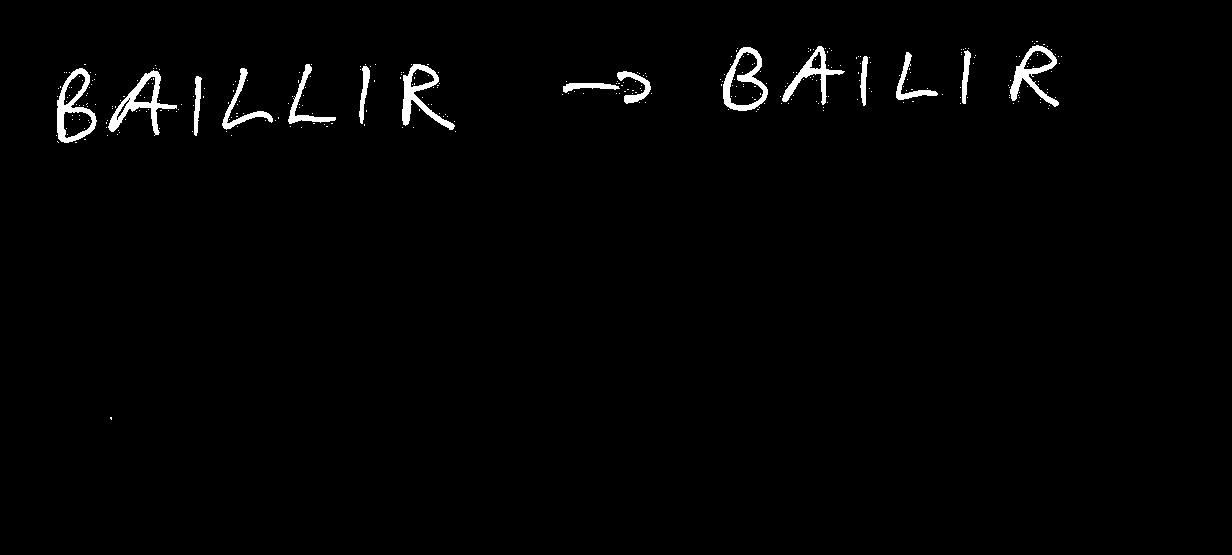 BAILLIR → BAILIR